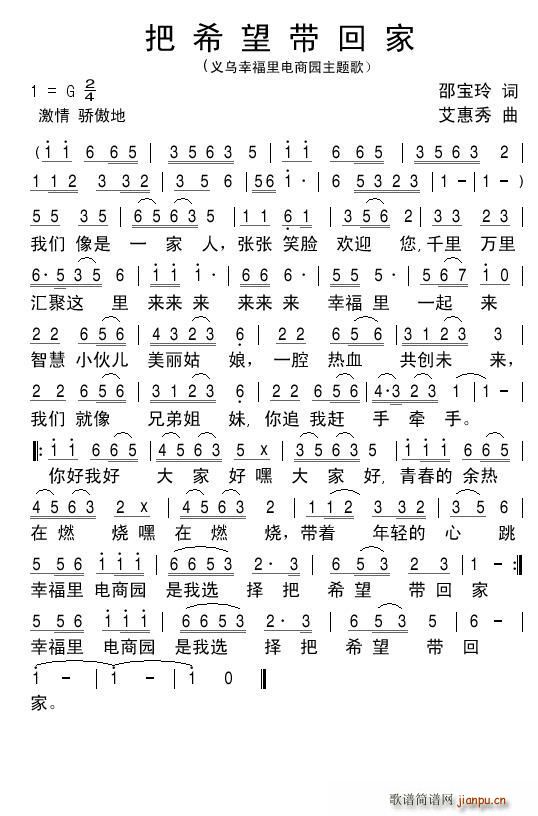 把希望带回家
（义乌幸福里电商园主题歌）
1 = G 2/4
邵宝玲 词
激情 骄傲地
艾惠秀 曲
( 1 1 6 6 5 | 3 5 6 3 5 | 1 1 6 6 5 | 3 5 6 3 2 |
1 1 2 3 3 2 | 3 5 3 5 | 5 6 1 · 6 | 6 5 3 2 3 | 1 - | 1 - )
5 5 3 5 | 6 5 6 3 5 | 1 1 6 1 | 3 5 6 5 3 2 3 | 2 3
我们 像是 一 家 人, 张张 笑脸 欢迎 您, 千里 万里
6 · 5 3 5 6 | 1 1 1 · | 6 6 6 · | 5 · 3 5 · | 5 6 7 1 0
汇聚这 里 来来 来 来来 来 幸福 里 一起 来
2 2 6 5 6 | 4 3 2 3 6 · | 2 2 6 5 6 | 3 1 2 3 3 |
智慧 小伙儿 美丽姑 娘, 一腔 热血 共创未 来,
2 2 6 5 6 | 3 5 6 3 6 · | 2 2 6 5 6 | 4 · 3 2 3 1 | 1 - |
我们 就像 兄弟姐 妹, 你追 我赶 手 牵 手。
‖: 1 1 6 6 5 | 4 5 6 3 5 x | 3 5 6 3 5 | 1 1 6 6 5 |
你好我好 大 家 好嘿 大 家 好, 青春的 余热
4 5 6 3 2 x | 1 8 6 3 5 | 1 1 2 1 2 | 3 · 5 6 |
在 燃 烧嘿 在 燃 烧, 带着 年轻的 心 跳
5 5 6 1 1 1 | 6 6 5 3 | 2 · 3 | 6 5 3 | 2 · 3 | 1 - :‖
幸福里 电商园 是我选 择 把 希 望 带 回 家
5 5 6 1 1 1 | 6 6 5 3 | 2 · 3 | 6 5 3 | 2 · 3 |
幸福里 电商园 是我选 择 把 希 望 带 回
1 - | 1 - | 1 0 ‖
家。
歌谱简谱网
jianpu.cn